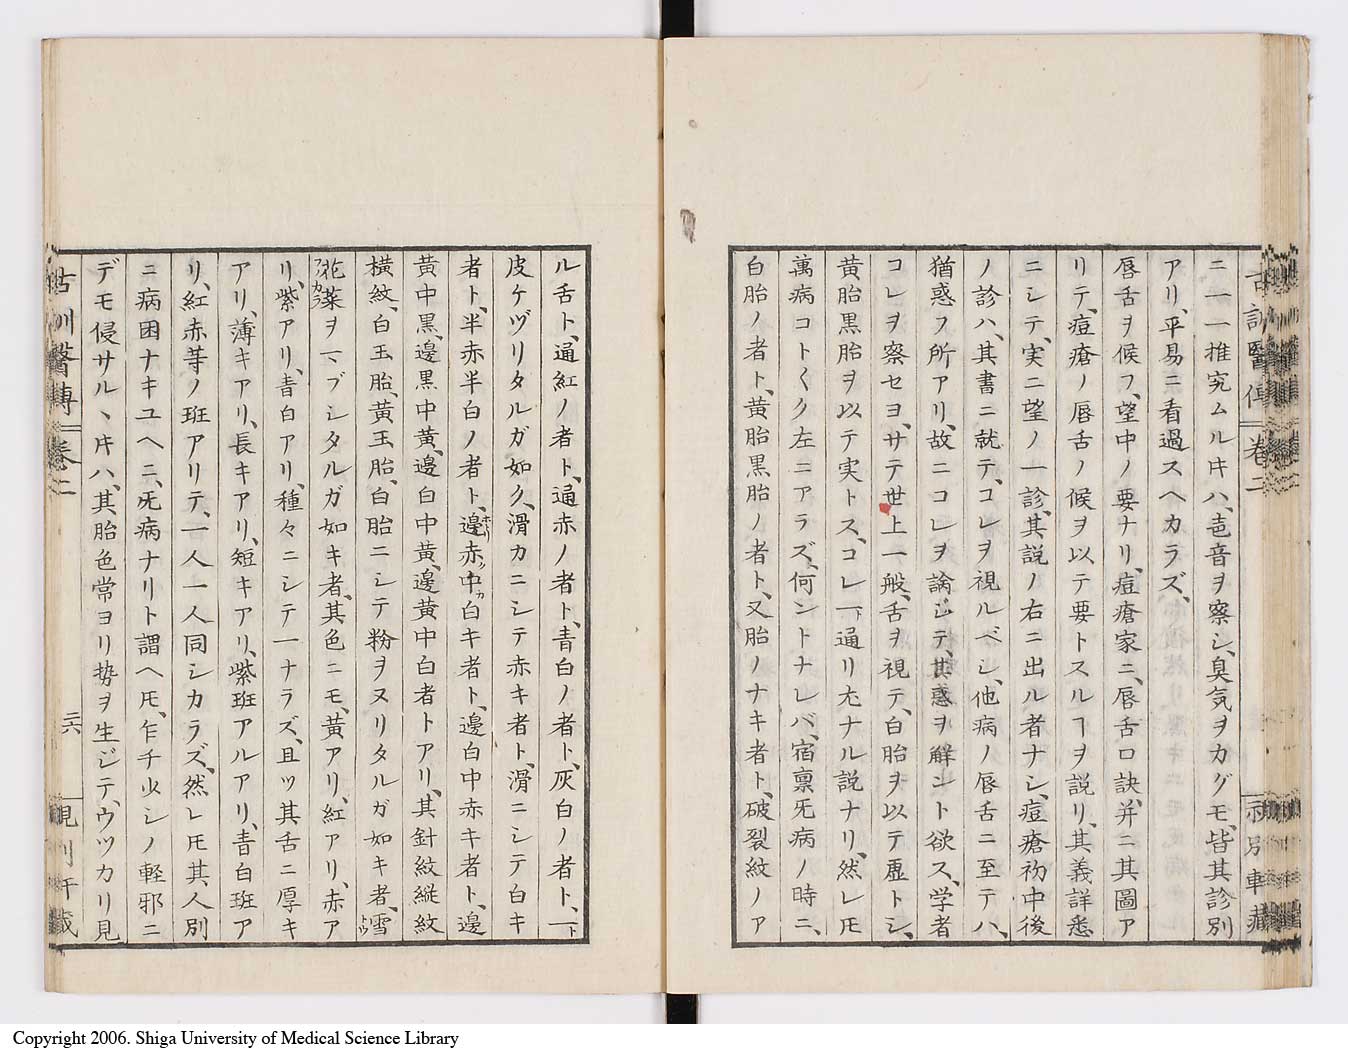 古訓醫傳 卷二
ニ一一推究ムル𪜈ハ、声音ヲ察シ、臭気ヲカグモ、皆其診別
アリ、平易ニ看過スヘカラズ、
唇舌ヲ候フ、望中ノ要ナリ、痘瘡家ニ、唇舌口訣、并ニ其圖ア
リテ、痘瘡ノ唇舌ノ候ヲ以テ要トスルヿヲ説リ、其義詳悉
ニシテ、実ニ望ノ一診、其説ノ右ニ出ル者ナシ、痘瘡初中後
ノ診ハ、其書ニ就テ、コレヲ視ルベシ、他病ノ唇舌ニ至テハ、
猶惑フ所アリ、故ニコレヲ論ジテ、其惑ヲ解ント欲ス、学者
コレヲ察セヨ、サテ世上一般、舌ヲ視テ、白胎ヲ以テ虚トシ、
黄胎黒胎ヲ以テ実トス、コレ一ト通リ尤ナル説ナリ、然レ𪜈
萬病コト〱ク左ニアラズ、何ントナレバ、宿稟旡病ノ時ニ、
白胎ノ者ト、黄胎黒胎ノ者ト、又胎ノナキ者ト、破裂紋ノア
ル舌ト、通紅ノ者ト、通赤ノ者ト、青白ノ者ト、灰白ノ者ト、一ト
皮ケヅリタルガ如ク、滑カニシテ赤キ者ト、滑ニシテ白キ
者ト、半赤半白ノ者ト、邊赤ク中白キ者ト、邊白中赤キ者ト、邊
黄中黒、邊黒中黄、邊白中黄、邊黄中白者トアリ、其針紋縦紋
横紋、白玉胎、黄玉胎、白胎ニシテ粉ヲヌリタルガ如キ者、雪
花菜ヲマブシタルガ如キ者、其色ニモ、黄アリ、紅アリ、赤ア
リ、紫アリ、青白アリ、種々ニシテ一ナラズ、且ツ其舌ニ厚キ
アリ、薄キアリ、長キアリ、短キアリ、紫斑アルアリ、青白斑ア
リ、紅赤等ノ斑アリテ、一人一人同シカラズ、然レ𪜈其人別
ニ病困ナキユヘニ、旡病ナリト謂ヘ𪜈、乍チ少シノ軽邪ニ
デモ侵サルヽ𪜈ハ、其胎色常ヨリ勢ヲ生ジテ、ウツカリ見
古訓醫傳 卷二
二六
Copyright 2006. Shiga University of Medical Science Library